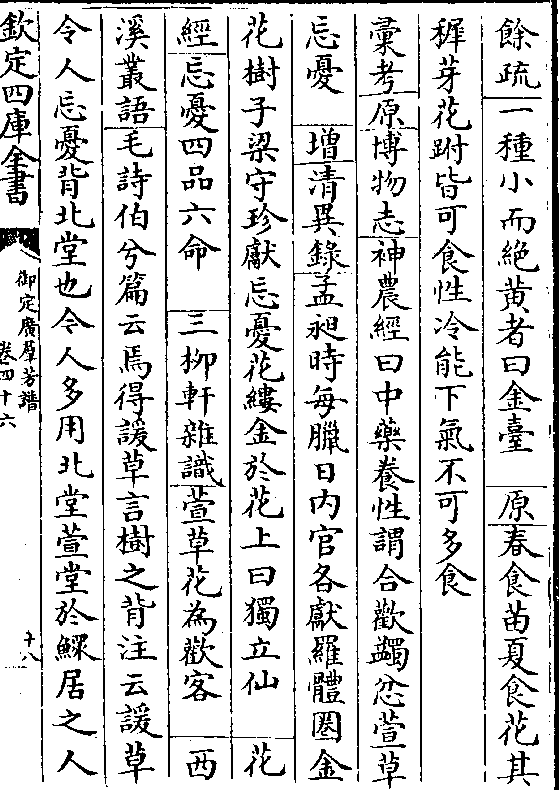 餘疏一種小而絶黄者曰金臺 原春食苗夏食花其
穉芽花跗皆可食性冷能下氣不可多食
彚考原博物志神農經曰中藥養性謂合歡蠲忿萱草
忘憂 増清異錄孟昶時每臘日内官各獻羅體圈金
花樹子梁守珍獻忘憂花縷金於花上曰獨立仙 花
經忘憂四品六命 三柳軒雜識萱草花為歡客 西
溪叢語毛詩伯兮篇云焉得諼草言樹之背注云諼草
令人忘憂背北堂也令人多用北堂萱堂於鰥居之人
欽定四庫全書
御定廣羣芳譜
卷四十六
十八